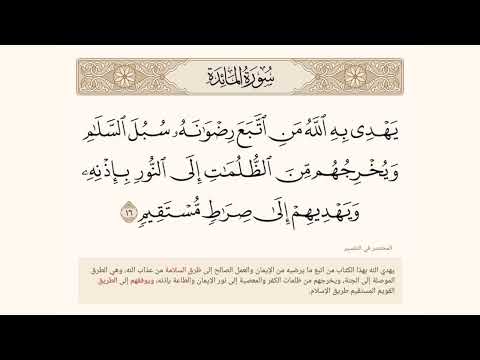 سُورَةُ المَائِدَةِ
يَهْدِى بِهِ ٱللَّهُ مَنِ ٱتَّبَعَ رِضْوَٰنَهُۥ سُبُلَ ٱلسَّلَٰمِ
وَيُخْرِجُهُم مِّنَ ٱلظُّلُمَٰتِ إِلَى ٱلنُّورِ بِإِذْنِهِۦ
وَيَهْدِيهِمْ إِلَىٰ صِرَٰطٍ مُّسْتَقِيمٍ ١٦
المختصر في التفسير
يهدي الله بهذا الكتاب من اتبع ما يرضيه من الإيمان والعمل الصالح إلى طرق السلامة من عذاب الله، وهي الطرق
الموصلة إلى الجنة، ويخرجهم من ظلمات الكفر والمعصية إلى نور الإيمان والطاعة بإذنه، ويوفقهم إلى الطريق
القويم المستقيم طريق الإسلام.